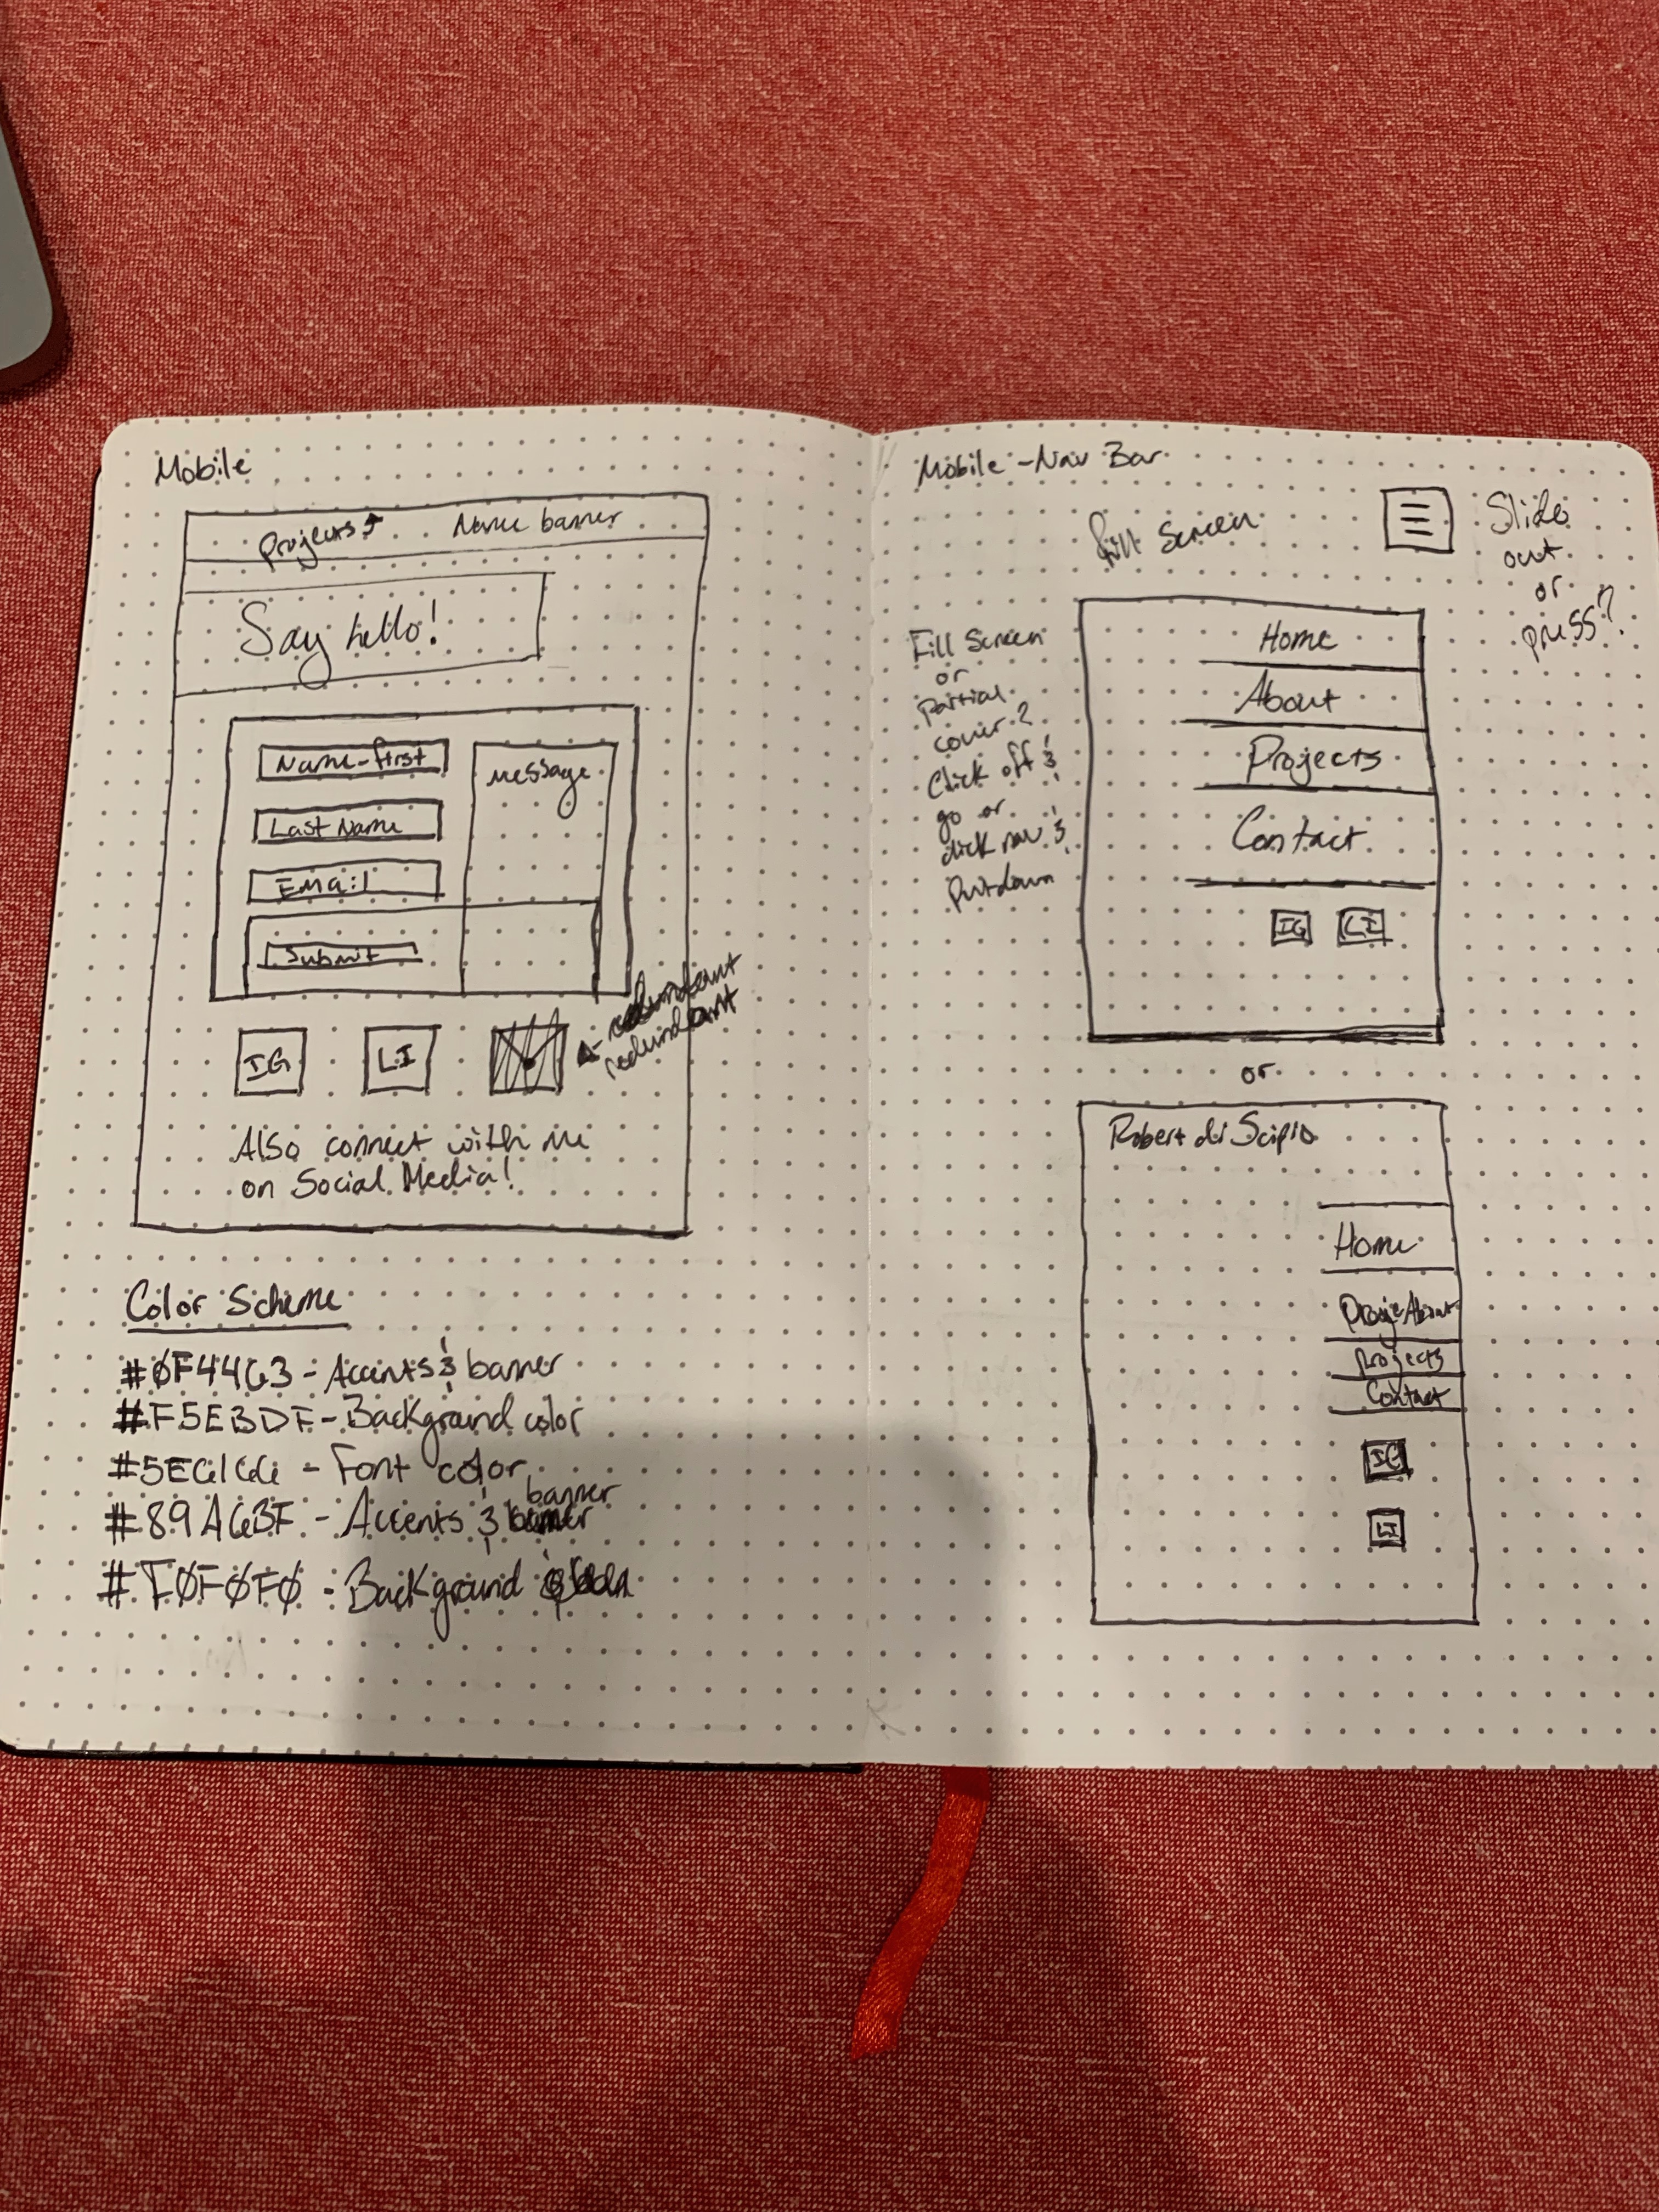 Mobile
Projects
Name banner
Say hello!
Name-first
Last Name
Email
Submit
message
IG
LI
redundant
Also connect with me
on Social Media!
Color Scheme
#0F4463 - Accents & banner
#F5EBDF - Background color
- Font color
banner
#89A6BF - Accents &
#F0F0F0 - Background
Mobile - Nav Bar
fill screen
Slide
out
or
press?
Fill Screen
or
Partial
cover?
Click off &
go or
click nav &
putdown
Home
About
Projects
Contact
IG
LI
or
Robert di Scipio
Home
About
Projects
Contact
IG
LI